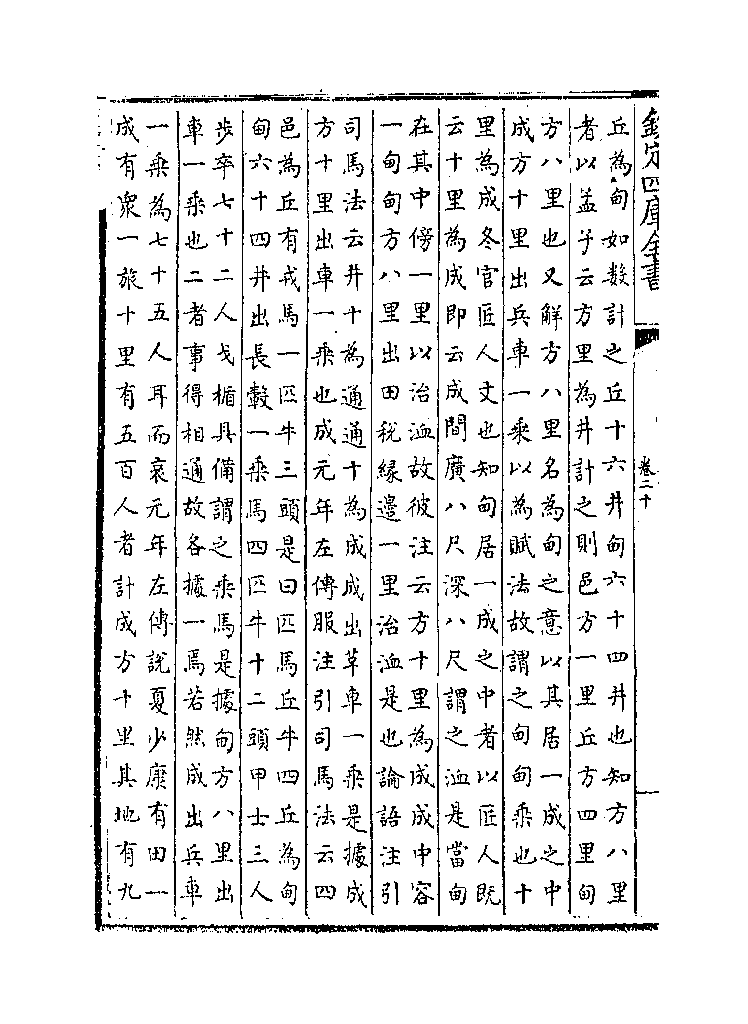 欽定四庫全書
卷二十
丘為甸如數計之丘十六井甸六十四井也知方八里
者以孟子云方里為井計之則邑方一里丘方四里甸
方八里也又解方八里名為甸之意以其居一成之中
成方十里出兵車一乘以為賦法故謂之甸甸乘也十
里為成冬官匠人文也知甸居一成之中者以匠人既
云十里為成即云成間廣八尺深八尺謂之洫是當甸
在其中傍一里以治洫故彼注云方十里為成成中容
一甸甸方八里出田稅緣邊一里治洫是也論語注引
司馬法云井十為通通十為成成出革車一乘是據成
方十里出車一乘也成元年左傳服注引司馬法云四
邑為丘有戎馬一匹牛三頭是曰匹馬丘牛四丘為甸
甸六十四井出長轂一乘馬四匹牛十二頭甲士三人
歩卒七十二人戈楯具備謂之乘馬是據甸方八里出
車一乘也二者事得相通故各據一焉若然成出兵車
一乘為七十五人耳而哀元年左傳說夏少康有田一
成有衆一旅十里有五百人者計成方十里其地有九